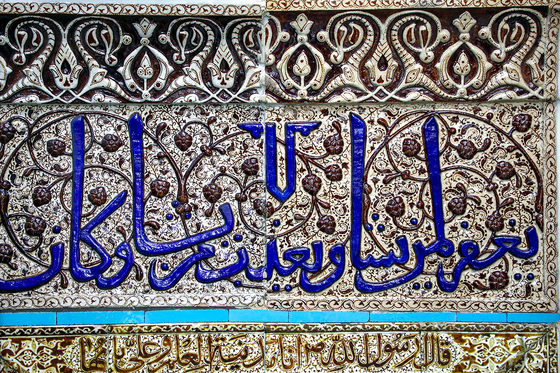 يغفر لمن يشا ويعذب من يشا وكان
قال رسول الله ص انا مدينة العلم وعلي بابها